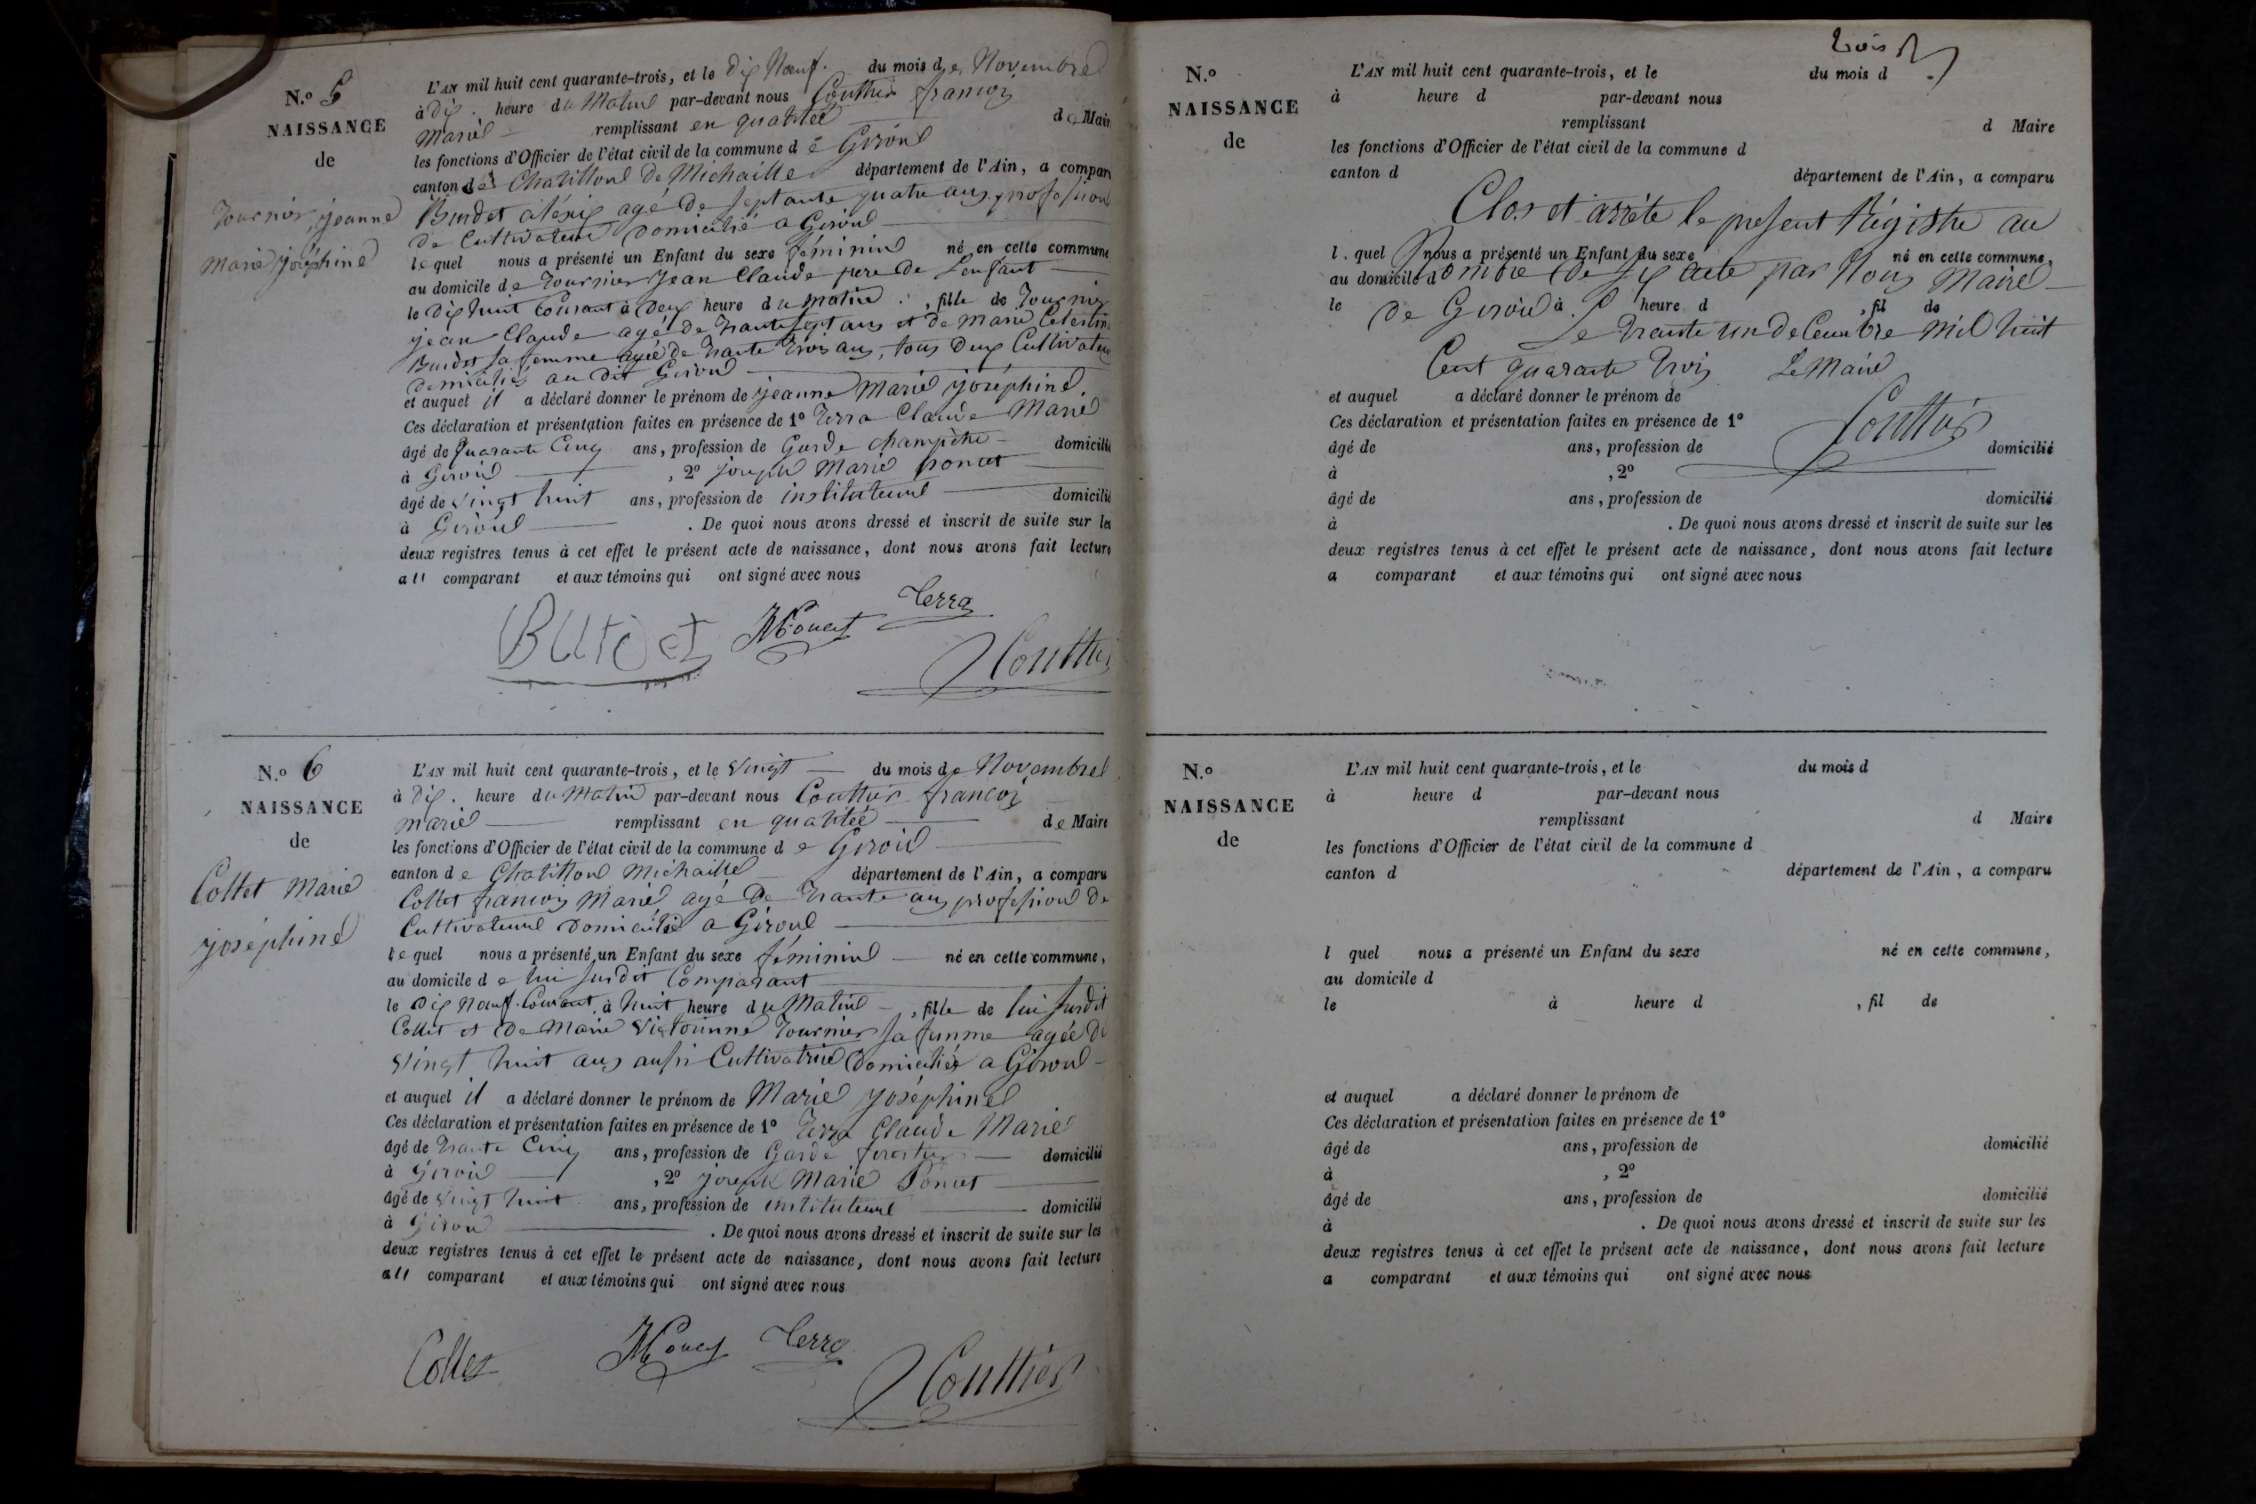 N.o 5
NAISSANCE
de
Tournier, jeanne
Marie joséphine
L'AN mil huit cent quarante-trois, et le Dix Nœuf. du mois de Novembre
à Dix. heure du Matin par-devant nous Coutthier françois
Marie remplissant en qualitée de Maire
les fonctions d'Officier de l'état civil de la commune de Giron
canton de Chatillon De Michaille département de l'Ain, a compar
Burdet aléxis agé de septante quatre ans, profession
De Cultivateur Domicilié a Giron
lequel nous a présenté un Enfant du sexe féminin né en cette commune
au domicile de Tournier Jean Claude pere de L'enfant
le Dix huit Courant à Deux heure du matin, fille de Tournier
jean Claude agé de trante sept ans et de Marie Celestine
Burdet sa femme agée de trante trois ans, tous Deux Cultivateur
Domiciliés au dit Giron
et auquel il a déclaré donner le prénom de jeanne Marie joséphine.
Ces déclaration et présentation faites en présence de 1° Terra Claude Marie
âgé de quarante Cinq ans, profession de Garde champêtre domicilié
à Giron, 2° joseph Marie Poncet
âgé de vingt huit ans, profession de instituteur domicilié
à Giron. De quoi nous avons dressé et inscrit de suite sur les
deux registres tenus à cet effet le présent acte de naissance, dont nous avons fait lecture
au comparant et aux témoins qui ont signé avec nous
Burdet JMPoncet Terra
Coutthier
N.o 6
NAISSANCE
de
Collet Marie
joséphine
L'AN mil huit cent quarante-trois, et le Vingt du mois de Novembre
à Dix. heure du Matin par-devant nous Coutthier françois
Marie remplissant en qualitée de Maire
les fonctions d'Officier de l'état civil de la commune de Giron
canton de Chatillon Michaille département de l'Ain, a comparu
Collet françois Marie agé De trante ans profession De
Cultivateur Domicilié a Giron
lequel nous a présenté un Enfant du sexe féminin né en cette commune,
au domicile de lui susdit Comparant
le Dix Nœuf Courant à huit heure du Matin, fille de lui susdit
Collet et De Marie Victorinne Tournier sa femme agée De
Vingt huit ans aussi Cultivatrice Domiciliés a Giron
et auquel il a déclaré donner le prénom de Marie joséphine
Ces déclaration et présentation faites en présence de 1° Terra Claude Marie
âgé de trante Cinq ans, profession de Garde forestier domicilié
à Giron, 2° joseph Marie Poncet
âgé de vingt huit ans, profession de instituteur domicilié
à Giron. De quoi nous avons dressé et inscrit de suite sur les
deux registres tenus à cet effet le présent acte de naissance, dont nous avons fait lecture
au comparant et aux témoins qui ont signé avec nous
Collet JMPoncet Terra
Coutthier
trois
N.o
NAISSANCE
de
L'AN mil huit cent quarante-trois, et le du mois d
à heure d par-devant nous
remplissant d Maire
les fonctions d'Officier de l'état civil de la commune d
canton d département de l'Ain, a comparu
Clos et arrête le present Régistre au
l quel nous a présenté un Enfant du sexe né en cette commune,
au domicile d
nombre De six acte par Nous Maire
le à heure d, fil de
De Giron
Le trante un Decembre Mil huit
Cent quarante trois Le Maire
et auquel a déclaré donner le prénom de
Ces déclaration et présentation faites en présence de 1°
Coutthier
âgé de ans, profession de domicilié
à, 2°
âgé de ans, profession de domicilié
à. De quoi nous avons dressé et inscrit de suite sur les
deux registres tenus à cet effet le présent acte de naissance, dont nous avons fait lecture
a comparant et aux témoins qui ont signé avec nous
N.o
NAISSANCE
de
L'AN mil huit cent quarante-trois, et le du mois d
à heure d par-devant nous
remplissant d Maire
les fonctions d'Officier de l'état civil de la commune d
canton d département de l'Ain, a comparu
l quel nous a présenté un Enfant du sexe né en cette commune,
au domicile d
le à heure d, fil de
et auquel a déclaré donner le prénom de
Ces déclaration et présentation faites en présence de 1°
âgé de ans, profession de domicilié
à, 2°
âgé de ans, profession de domicilié
à. De quoi nous avons dressé et inscrit de suite sur les
deux registres tenus à cet effet le présent acte de naissance, dont nous avons fait lecture
a comparant et aux témoins qui ont signé avec nous